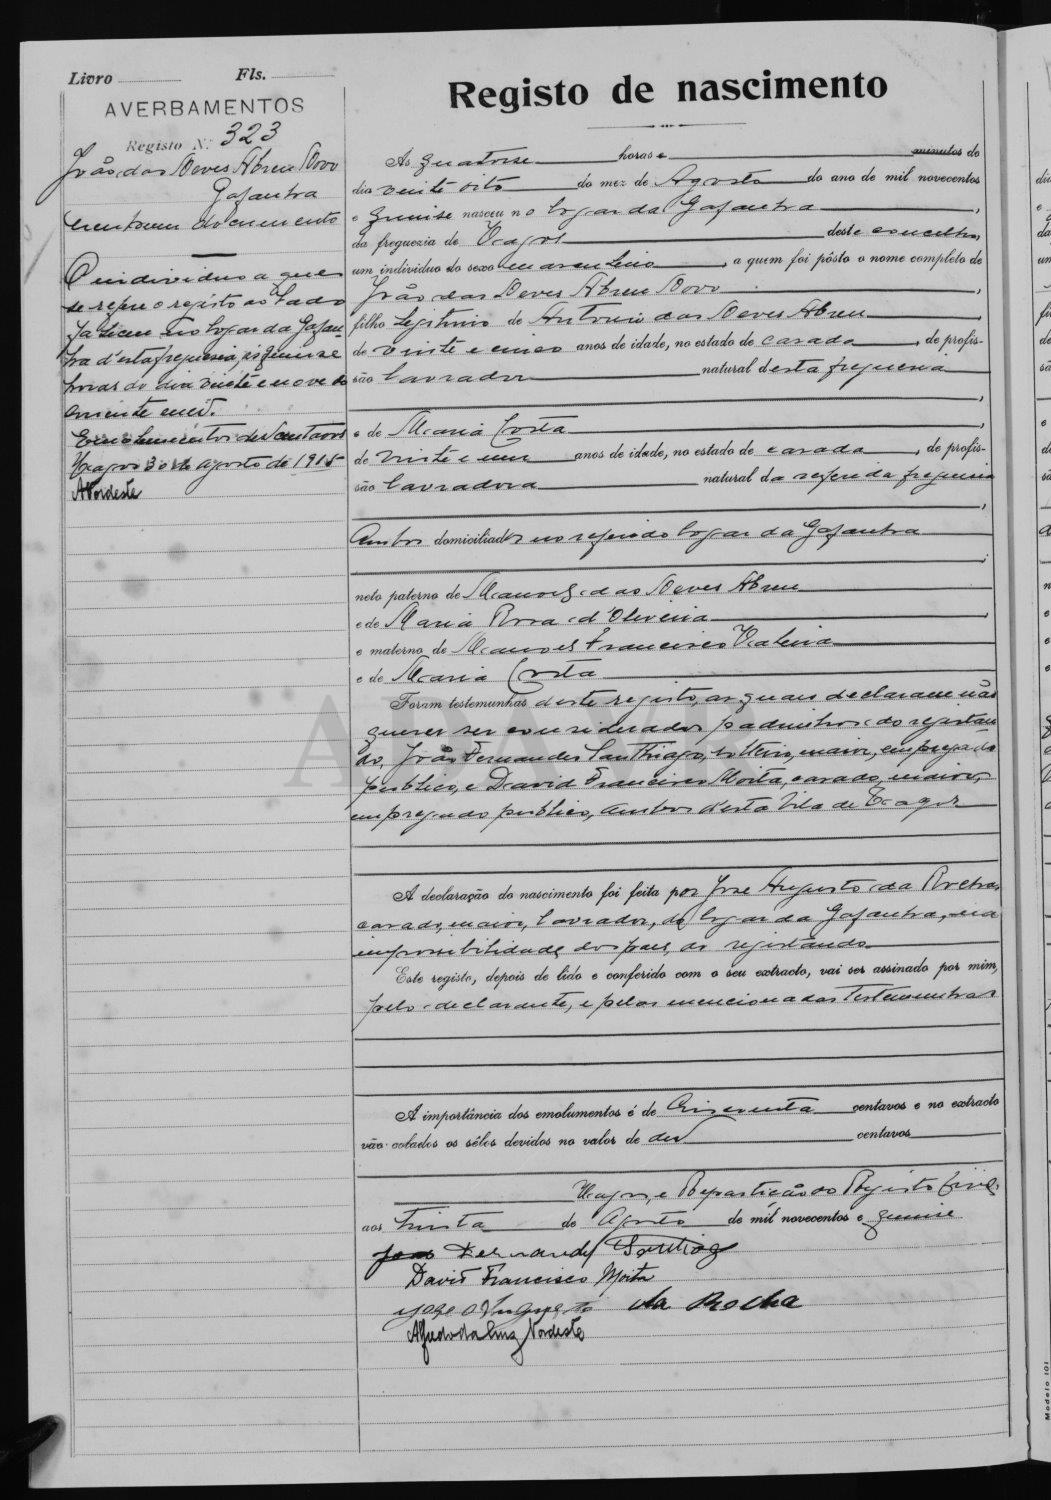 Livro Fls.
AVERBAMENTOS
Registo N.º 323
João das Neves Abreu Novo
Gafanha
nenhum documento
O individuo a que
se refere o registo ao lado
faleceu no logar da Gafan-
ha d'esta freguesia, ás quinze
horas do dia vinte e nove do
corrente mez.
Emolumentos dez centavos
Vagos 30 de Agosto de 1915
ANordeste
Registo de nascimento
As quatorze horas e minutos do
dia vinte oito do mez de Agosto do ano de mil novecentos
e quinze nasceu no logar da Gafanha,
da freguezia de Vagos deste concelho,
um individuo do sexo masculino, a quem foi pôsto o nome completo de
João das Neves Abreu Novo,
filho legitimo de Antonio das Neves Abreu
de vinte e cinco anos de idade, no estado de casado, de profis-
são lavrador natural desta freguesia
,
e de Maria Costa,
de vinte e um anos de idade, no estado de casada, de profis-
são lavradora natural da referida freguesia
,
Ambos domiciliados no referido logar da Gafanha
;
neto paterno de Manoel das Neves Abreu
e de Maria Rosa d'Oliveira,
e materno de Manoel Francisco
e de Maria Costa
Foram testemunhas deste registo, as quais declararam não
querer ser considerados padrinhos do registan-
do, João Fernandes Santhiago, solteiro, maior, empregado
publico, e David Francisco Moita, casado, maior,
empregado publico, ambos d'esta Vila de Vagos
A declaração do nascimento foi feita por José Augusto da Rocha,
casado, maior, lavrador, do logar da Gafanha, na
impossibilidade dos paes do registando
Este registo, depois de lido e conferido com o seu extracto, vai ser assinado por mim,
pelo declarante, e pelas mencionadas testemunhas
A importância dos emolumentos é de cincoenta centavos e no extracto
vão colados os sêlos devidos no valor de dez centavos
Vagos, e Repartição do Registo Civil,
aos trinta de Agosto de mil novecentos e quinze
João Fernandes Santiago
David Francisco Moita
José Augusto da Rocha
Alfredo da Cruz Nordeste
Modelo 101